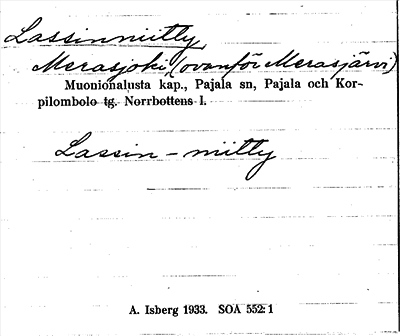 Lassinniitty,
Merasjoki, (ovanför Merasjärvi)
Muonionalusta kap., Pajala sn, Pajala och Kor-
pilombolo tg. Norrbottens l.
Lassin-niitty
A. Isberg 1933. SOA 552:1